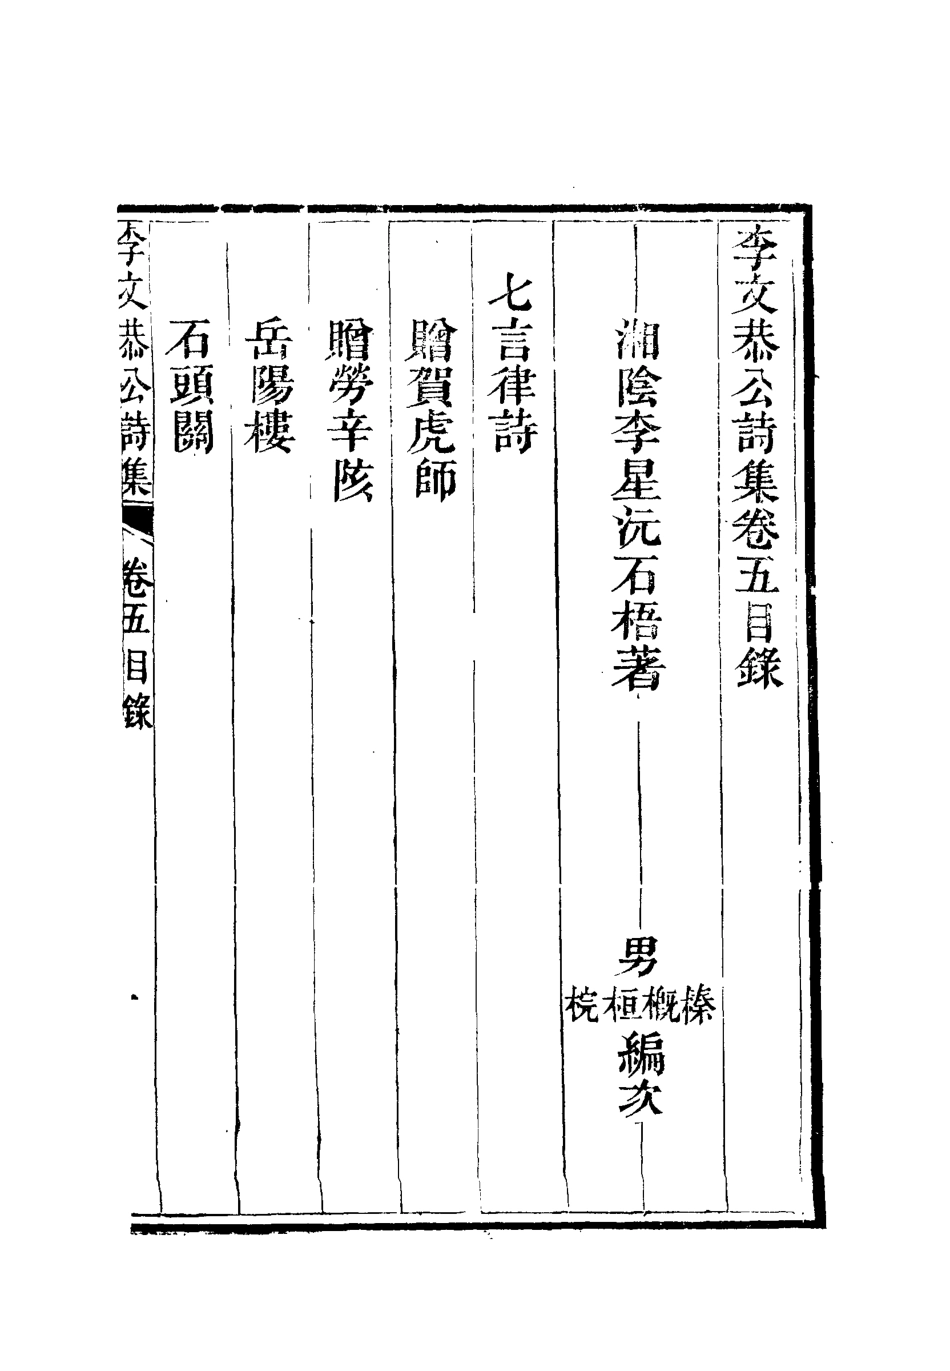 李文恭公詩集卷五目錄
湘陰李星沅石梧著 男榛概桓梡編次
七言律詩
贈賀虎師
贈勞辛陔
岳陽樓
石頭關
李文恭公詩集 卷五目錄